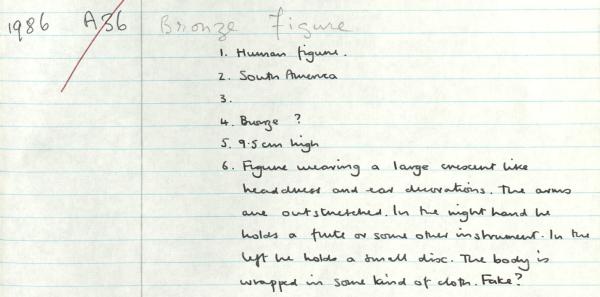 1986 A36 Bronze Figure
1. Human figure.
2. South America
3.
4. Bronze ?
5. 9.5 cm high
6. Figure wearing a large crescent like
headdress and ear decorations. The arms
are outstretched. In the right hand he
holds a flute or some other instrument. In the
left he holds a small disc. The body is
wrapped in some kind of cloth. Fake?